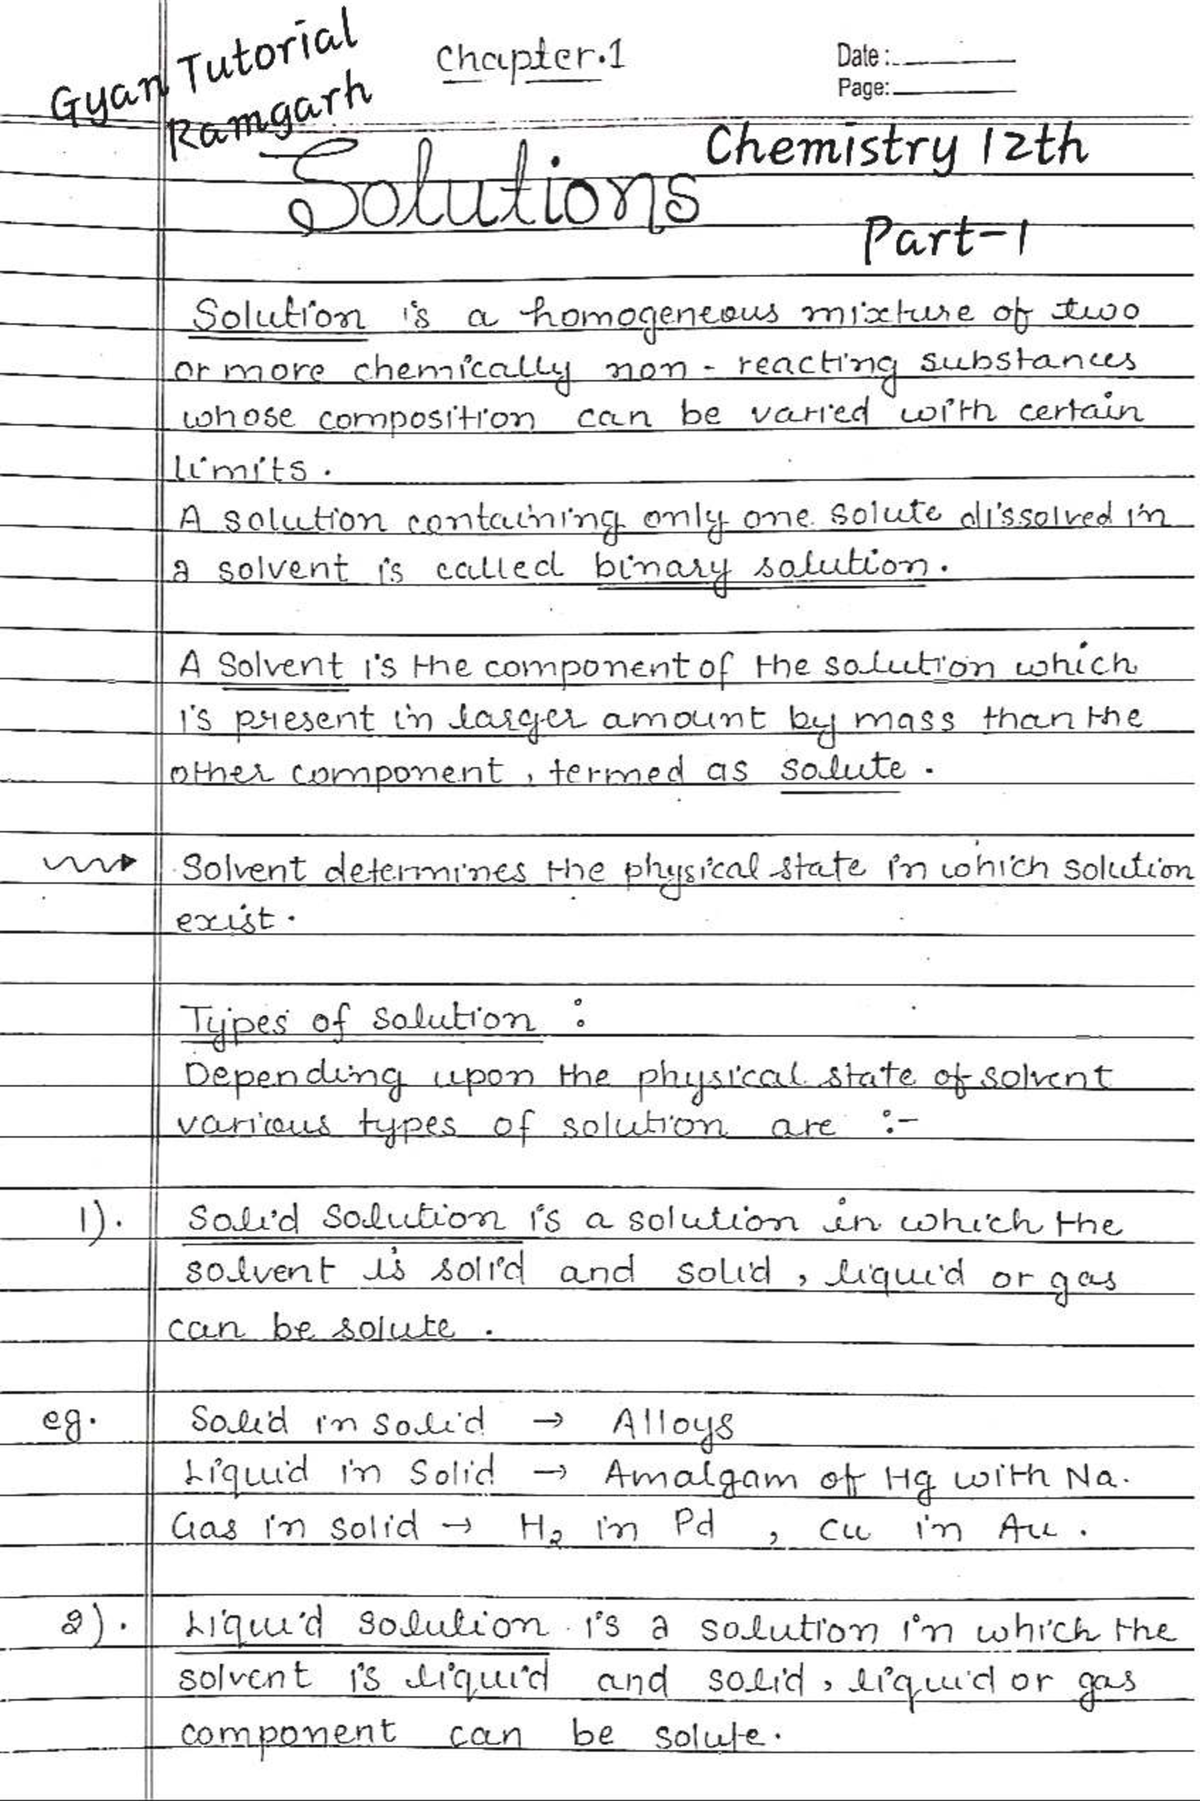 Gyan Tutorial
Ramgarh
Chapter.1
Date:
Page:
Solutions
Chemistry 12th
Part-1
Solution is a homogeneous mixture of two
or more chemically non-reacting substances
whose composition can be varied with certain
limits.
A solution containing only one solute dissolved in
a solvent is called binary solution.
A Solvent is the component of the solution which
is present in larger amount by mass than the
other component, termed as solute.
Solvent determines the physical state in which solution
exist.
Types of solution :
Depending upon the physical state of solvent
various types of solution are :-
1). Solid Solution is a solution in which the
solvent is solid and solid, liquid or gas
can be solute.
eg. Solid in Solid → Alloys
Liquid in Solid → Amalgam of Hg with Na.
Gas in solid → H₂ in Pd , Cu in Au.
2). Liquid solution is a solution in which the
solvent is liquid and solid, liquid or gas
component can be solute.